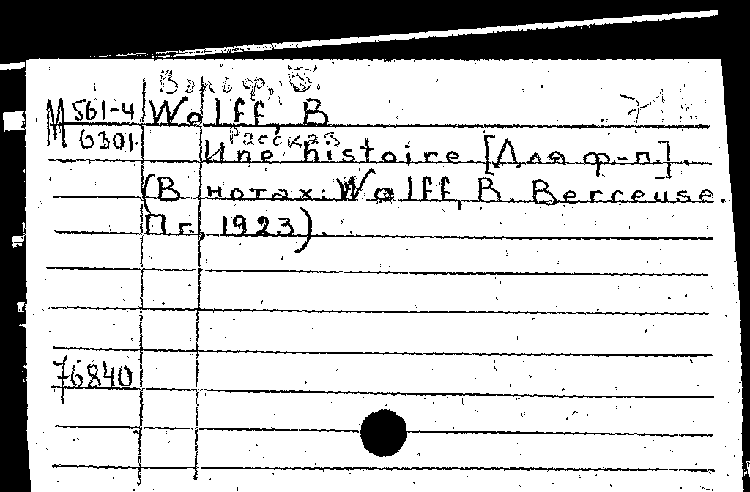 Вольф, Б.
М 561-4 Wolff, B
6301
Рассказ
Une histoire [Для ф-п.].
(В нотах: Wolff, B. Berceuse.
Пг., 1923).
76840